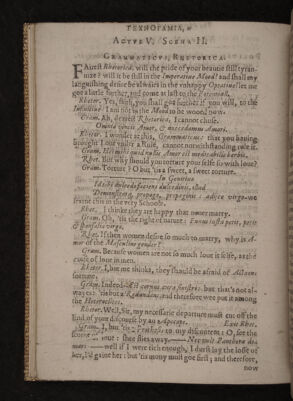 ΤΕΧΝΟΓΑΜΙΑ, or
ACTVS V. SCENA II.
GRAMMATICVS, RHETORICA.
FAirest Rhetorica, will the pride of your beautie still tyran-
nize? will it be still in the Imperatiue Mood? and shall my
languishing desire be alwaies in the vnhappy Optatiue? let me
goe a little further, and come at last to the Potentiall.
Rhetor. Yes, sir, you shall goe further if you will, to the
I am not in the Mood to be wooed now.
Gram. Ah, dearest Rhetorica, I cannot chuse.
Omnia vincit Amor, & nos cedamus Amori.
Rhetor. I wonder at this, Grammaticus; that you hauing
brought Loue vnder a Rule, cannot notwithstanding rule it.
Gram. Hei mihi quod nullis Amor est medicabilis herbis.
Rhet. But why should you torture your selfe so with loue?
Gram. Torture? O but 'tis a sweet, a sweet torture.
in Genitiue
dulcedinis, illud
adijce virgo
this in the very Schoole.
Rhet. I thinke they are happy that neuer marry.
Gram. Oh, 'tis the right of nature:
Rhet. If then women desire so much to marry, why is A-
mor of the Masculine gender?
Gram. Because women are not so much loue it selfe, as the
cause of loue in men.
Rhetor. I, but me thinks, they should be afraid of
fortune.
Gram. Indeed but that's not al-
waies: 'tis but a Redundans, and therefore wee put it among
the Heteroclites.
Rhetor. Well, Sir, my necessarie departure must cut off the
end of your discourse by an Apocope. Exit Rhet.
Gram. I, but 'tis to my discontent: O, see the
shee flies away.
well if I were rich enough, I durst lay the losse of
her, I'd gaine her: but 'tis mony must goe first; and therefore,
now